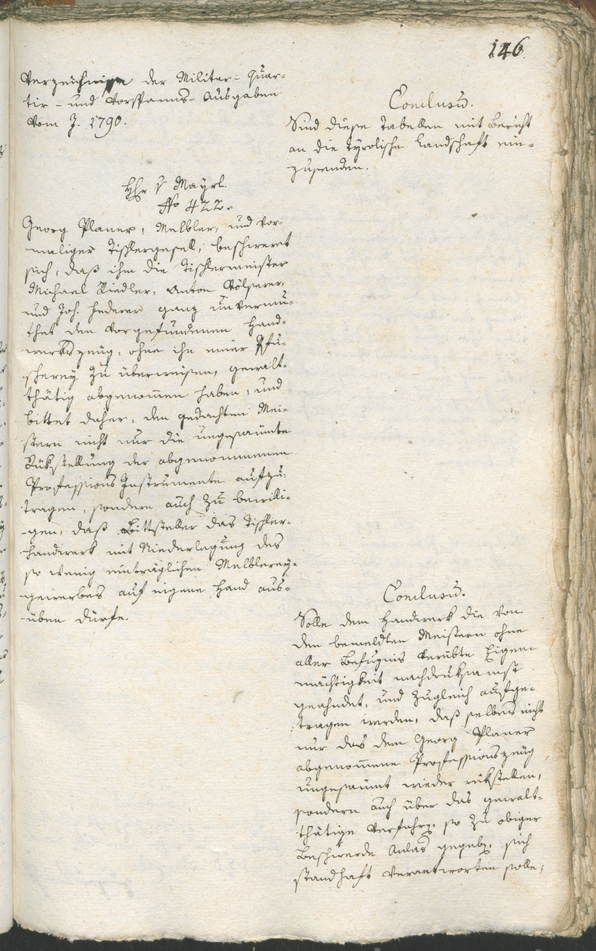 146.
Verzeichnisse der Militar- Quar-
tir- und Vorspanns-Ausgaben
vom J. 1790.
Conclusū.
Sind diese Tabellen mit Bericht
an die tyrolische Landschaft ein-
zusenden.
Hr. v Mayrl.
No 422.
Georg Planer, Melbler, und vor-
maliger Tischlergesell, beschweret
sich, daß ihm die Tischlermeister
Michael Riedler, Anton Völserer,
und Joh. Hederer ganz unvermu-
thet den vorgefundenen Hand-
werkszeug, ohne ihn einer Pfu-
scherey zu überweisen, gewalt-
thätig abgenom̄en haben, und
bittet daher, den gedachten Mei-
stern nicht nur die ungesaumte
Rükstellung der abgenommenen
Professions Instrumente aufzu-
tragen, sondern auch zu bewilli-
gen, daß Bittsteller das Tischler-
handwerk mit Niederlegung des
so wenig einträglichen Melblerey-
gewerbes auf eigene Hand aus-
üben dürfe.
Conclusū.
Solle dem Handwerk die von
den bemeldten Meistern ohne
aller Befugnis verübte Eigen-
mächtigkeit nachdruksamst
geahndet, und zugleich aufge-
tragen werden, daß selbes nicht
nur das dem Georg Planer
abgenom̄ene Professionszeug
ungesaumt wieder rükstellen,
sondern auch über das gewalt-
thätige Verfahrn, so zu obiger
Beschwerde Anlas gegebn, sich
standhaft verantworten solle;